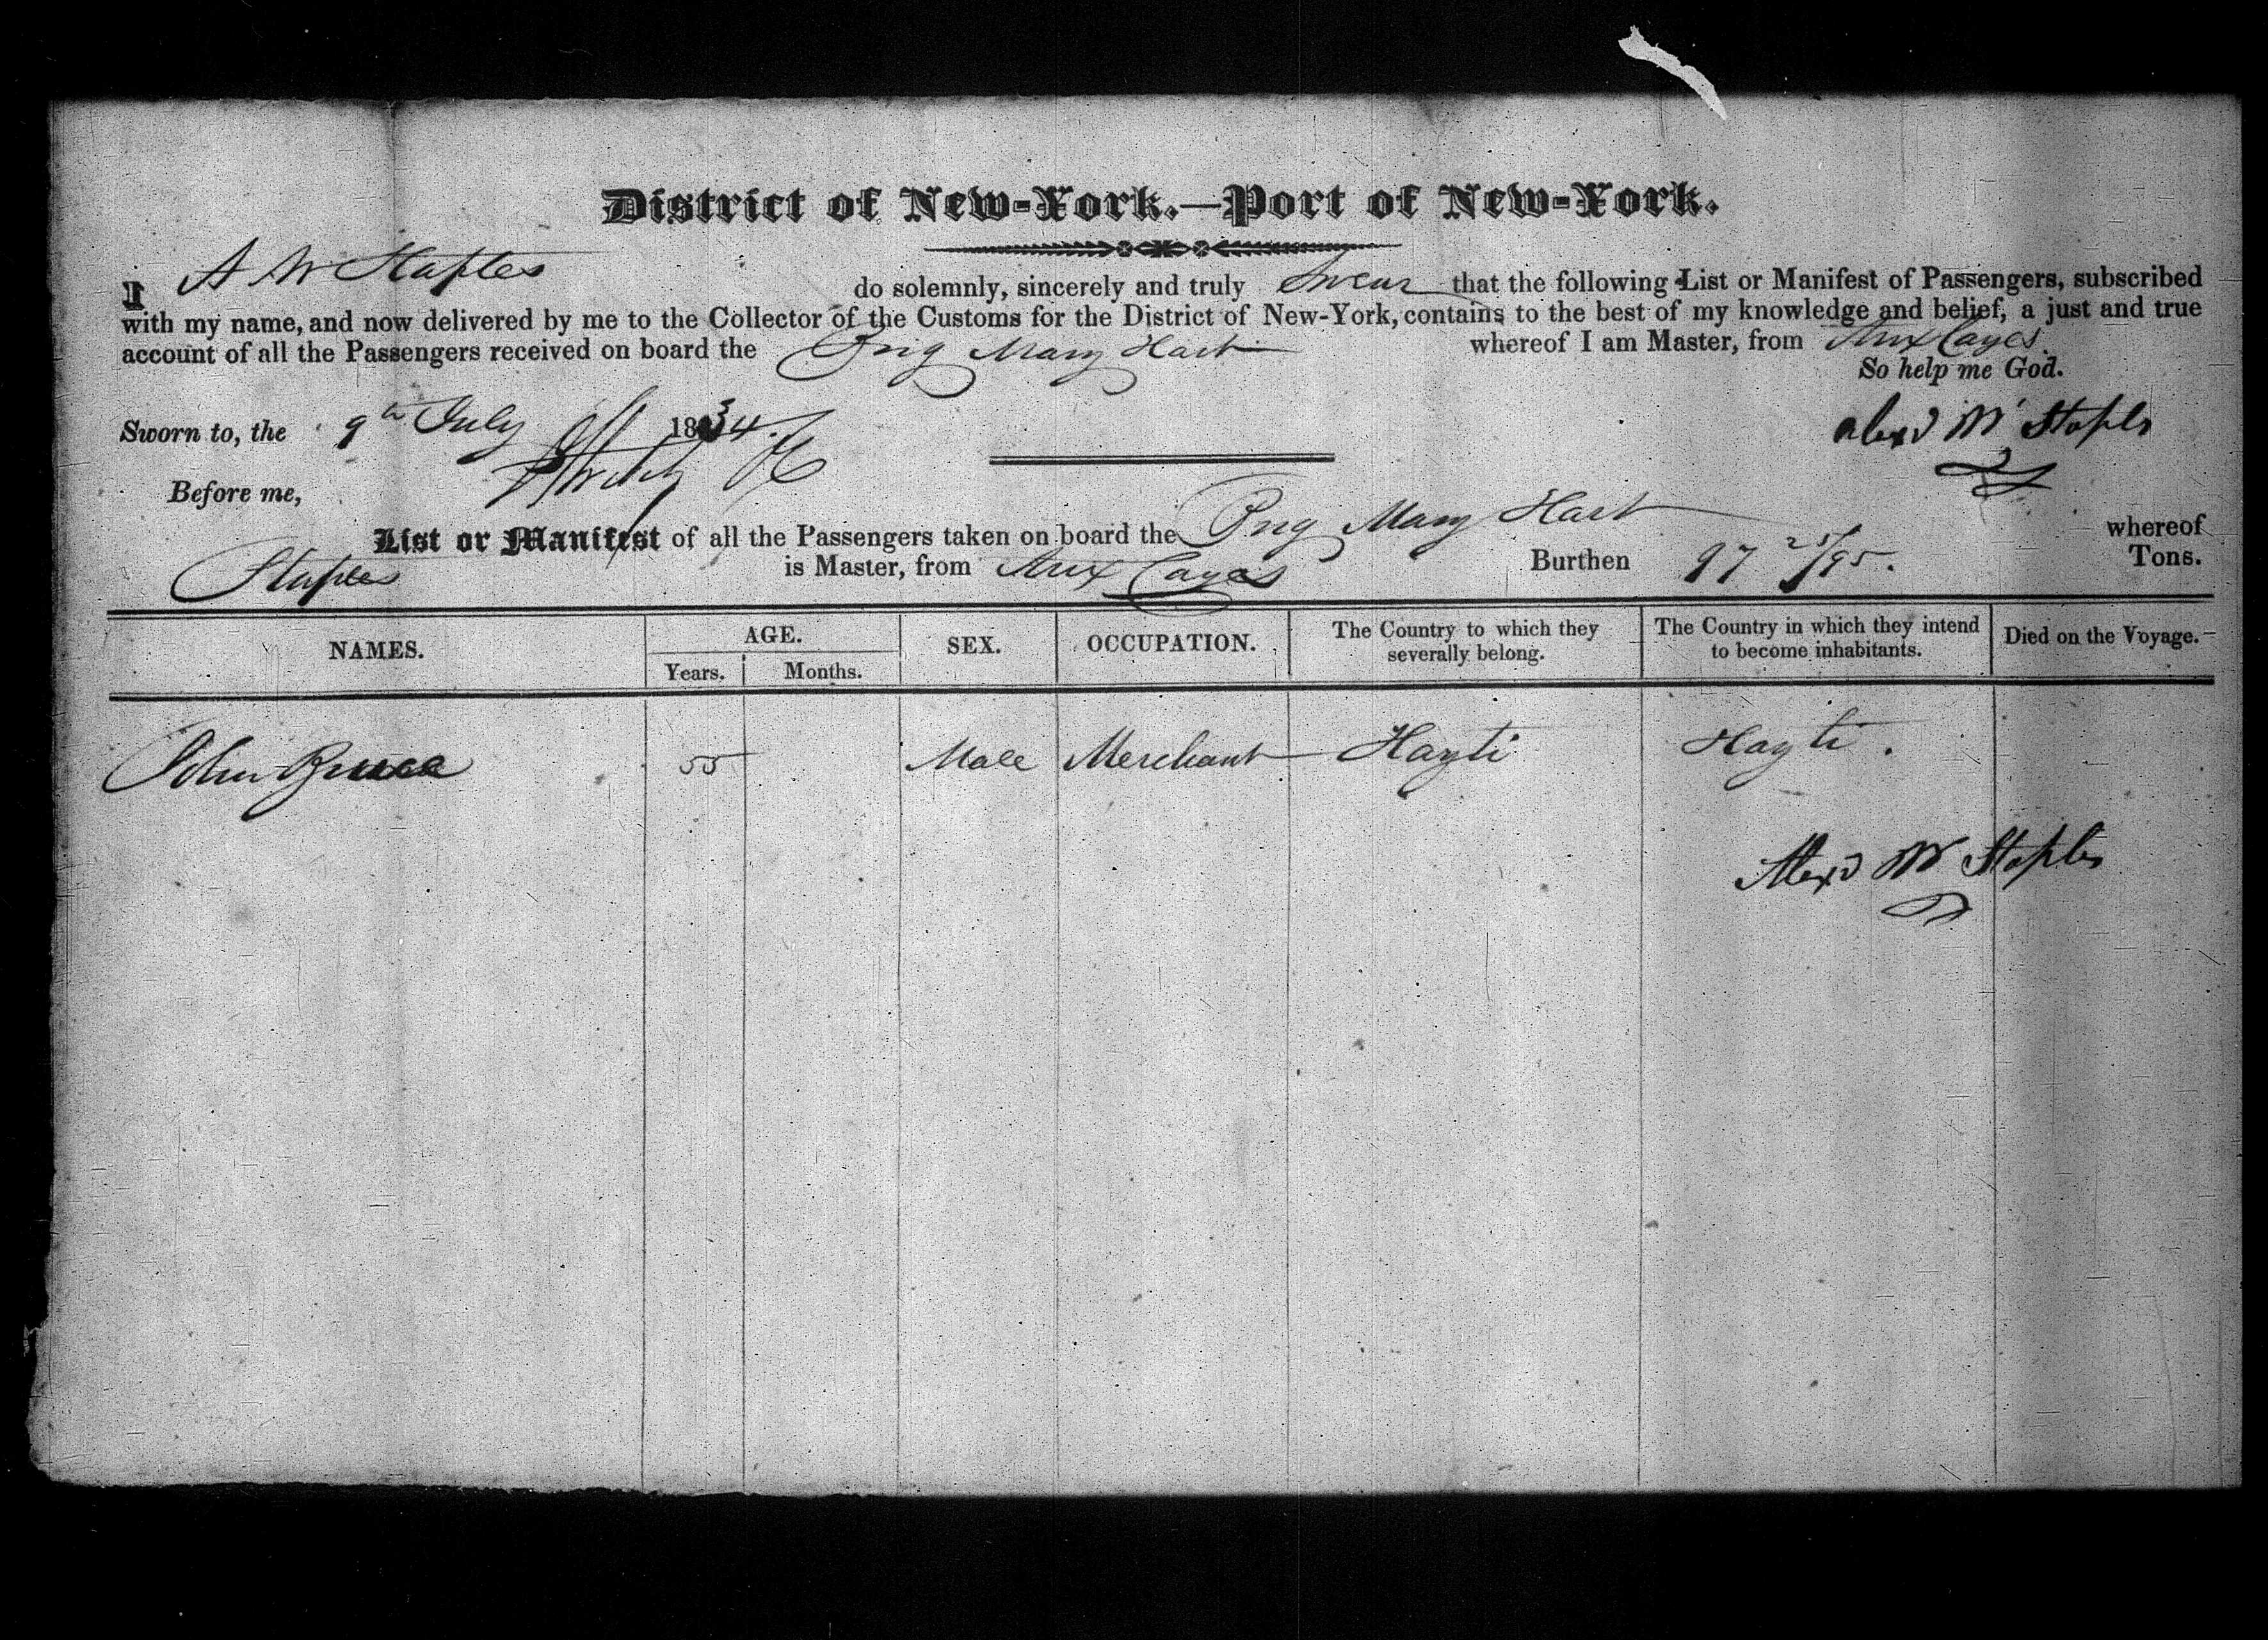 District of New-York.—Port of New-York.
I A W Staples do solemnly, sincerely and truly Swear that the following List or Manifest of Passengers, subscribed
with my name, and now delivered by me to the Collector of the Customs for the District of New-York, contains to the best of my knowledge and belief, a just and true
account of all the Passengers received on board the Brig Mary Hart whereof I am Master, from Aux Cayes.
So help me God.
Sworn to, the 9th July 1834. Alexd W Staples
Before me,
List or Manifest of all the Passengers taken on board the Brig Mary Hart whereof
Staples is Master, from Aux Cayes Burthen 97 /95. Tons.
NAMES. AGE. SEX. OCCUPATION. The Country to which they severally belong. The Country in which they intend to become inhabitants. Died on the Voyage.
Years. Months.
John 55 Male Merchant Hayti Hayti.
Alexd W Staples